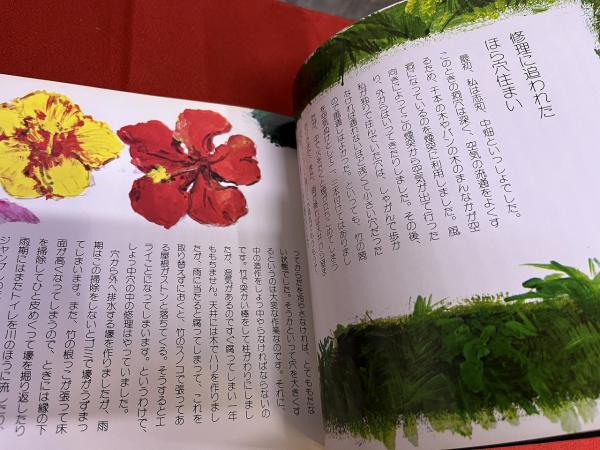 修理に追われた
ほら穴住まい
最初、私は志知、中畑といっしょでした。
このときの洞穴は深く、空気の流通をよくす
るため、千本の木やパンの木のまんなかが空
洞になっているのを煙突に利用しました。風
向きによってこの煙突から空気が出て行った
り、外からはいってきたりしました。その後、
私が独りで住んでいた穴は、しゃがんで歩か
なければ通れないほど浅くて小さい穴だった
ので風通しはよかった。といっても、竹の筒
ってからだを冷らさなければ、とてももたな
い状態でした。そうかといって穴を大きくす
るというのは大変な作業なのです。それに、
中の造作をしょっ中やらなければならないの
です。竹で突かい棒をして柱がわりにしまし
たが、湿気があるのですぐ腐ってしまい一年
ももちません。天井には木でハリを作りまし
たが、雨に当たると腐ってしまって、これを
取り替えずにおくと、竹のスノコで張ってあ
る屋根がストンと落ちてくる。そうするとエ
ライことになってしまいます。というわけで、
しょっ中穴の中の修理はやっていました。
穴から外へ排水する壕を作りましたが、雨
期はこの掃除をしないとゴミで壕がうずまっ
てしまいます。また、竹の根っこが張って床
面が高くなってしまうので、ときには縁の下
を掃除してひと皮めくって壕を掘り返したり
雨期にはまたトイレを川のほうに流し